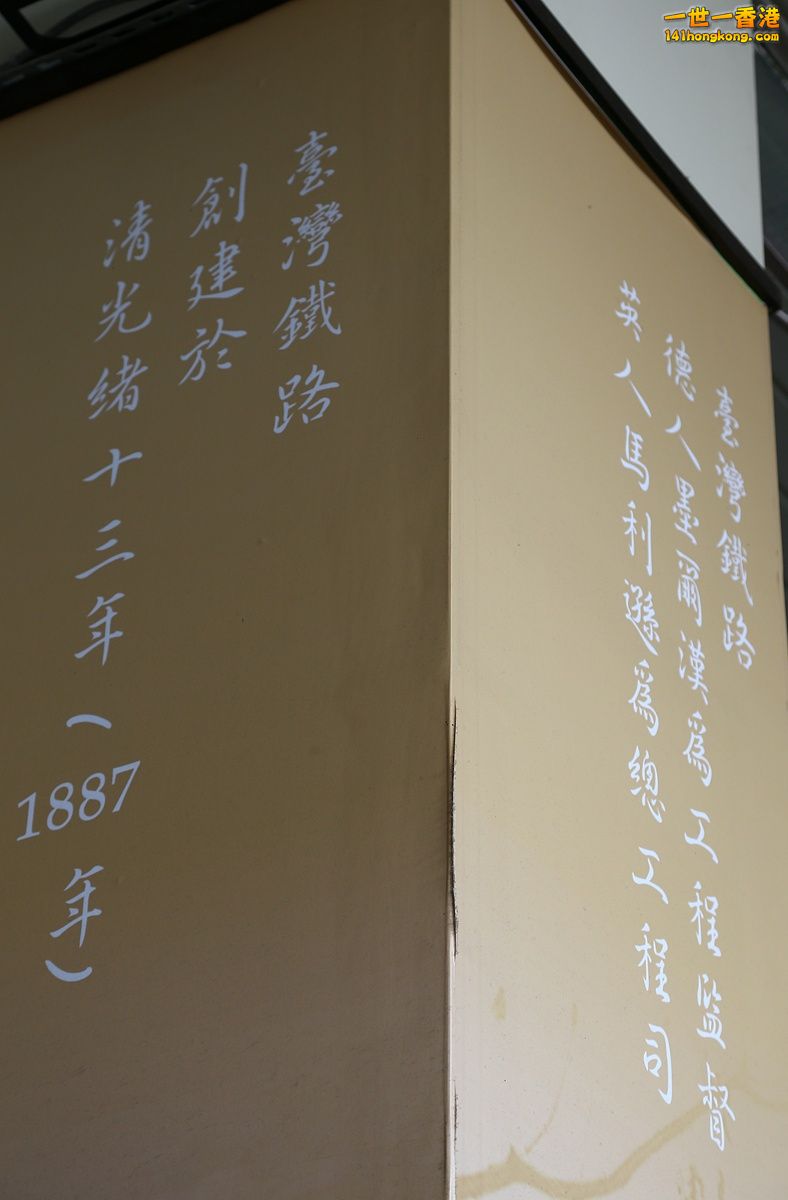 一世一香港
141hongkong.com
臺灣鐵路
創建於
清光緒十三年（1887年）
臺灣鐵路
德人墨爾漢為工程監督
英人馬利遜為總工程司